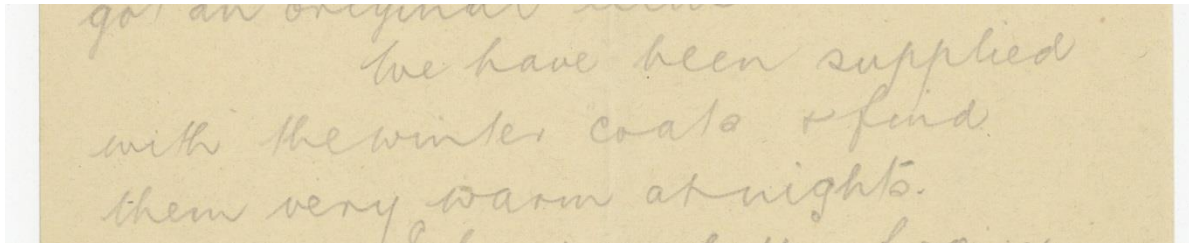 got an original
We have been supplied
with the winter coats & find
them very warm at nights.